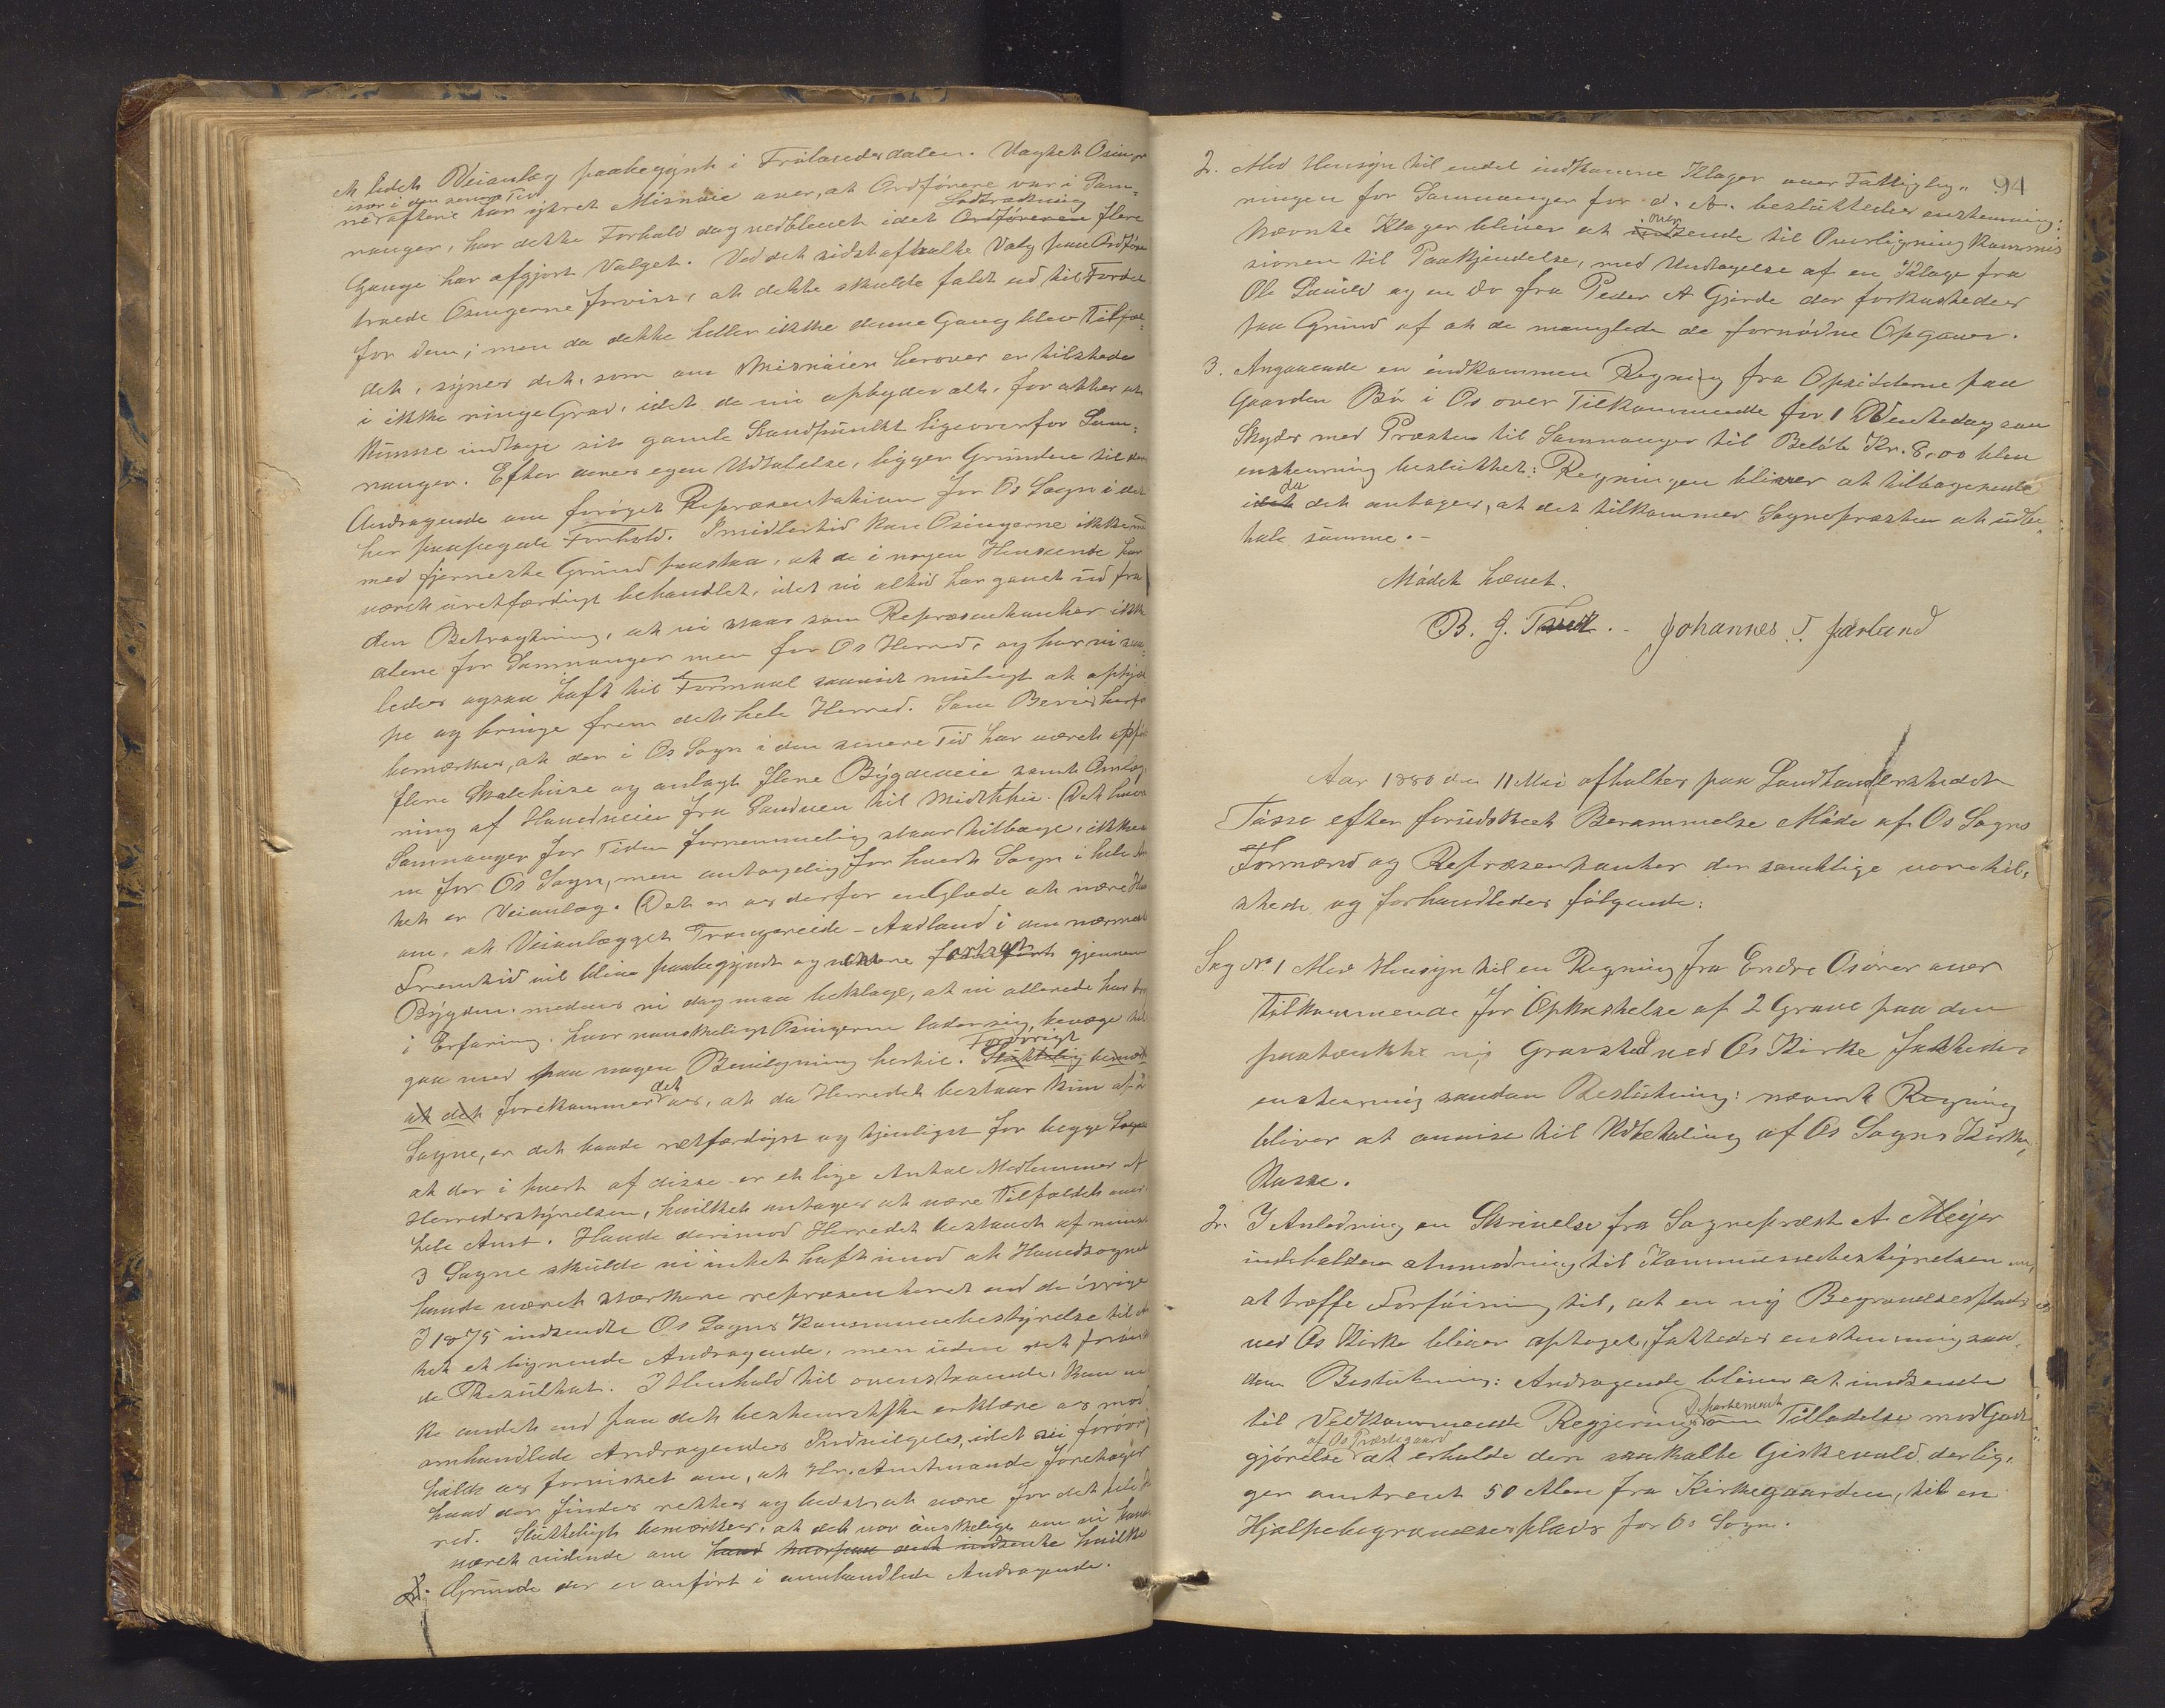 et lidet Veianlæg paabegyndt i Frølandsdalen. Uagtet Osing
især i den senere Tid
nerne aftere har ytret Misnøie over, at Ordførere var i Sam-
Lodtrækning
ranger, har dette Forhold dog vedblevet idet Ordføreren flere
Gange har afgjort Valget. Ved det sidst afholdte Valg paa Ordfører
troede Osingerne forvist, at dette skulde faldt ud til Fordel
for dem; men da dette heller ikke denne Gang blev Tilfæl-
det, synes det, som om Misnøien herover er tilstede
i ikke ringe Grad, idet de nu opbyder alt, for atter at
kunne indtage sit gamle Standpunkt ligeoverfor Sam-
nanger. Efter deres egen Udtalelse, ligger Grunden til den
Andragende om forøget Repræsentation for Os Sogn i det
her paapegede Forhold. Imidlertid kan Osingerne ikke
med fjerneste Grund paastaa, at de i nogen Henseende har
været uretfærdigt behandlet, idet vi altid har gaaet ud fra
den Betragtning, at vi staar som Repræsentanter ikke
alene for Samnanger men for Os Herred, og har vi saa-
ledes ogsaa haft til Formaal saavidt muligt at ophjæl
pe og bringe frem det hele Herred. Som Bevis herfor
bemærkes, at der i Os Sogn i den senere Tid har været opført
flere Skolehuse og anlagt flere Bygdeveie samt Omlæg
ning af Hovedveien fra Sandven til Midthu. Det hvori
Samnanger for Tiden fornemmelig staar tilbage, ikke
ne for Os Sogn, men antagelig for hvert Sogn i hele Am
tet er Veianlæg. Det er os derfor en Glæde at være
om, at Veianlægget Trengereide - Aadland i den nærmeste
Fremtid vil blive paabegyndt og videre fortsat gjennem
Bygden, medens vi dog maa beklage, at vi allerede har
i Erfaring, hvor vanskeligt Osingerne lader sig bevæge til
Forøvrigt
gaa med paa nogen Bevilgning hertil. Sluttelig bemærk
det
at det forekommer os, at da Herredet bestaar kun af 2
Sogne, er det baade retfærdigst og tjenligst for begge Sogne
at der i hvert af disse er et lige Antal Medlemmer af
Herredsstyrelsen, hvilket antages at være Tilfældet over
hele Amt. Havde derimod Herredet bestaaet af mindst
3 Sogne skulde vi intet haft imod at Hovedsognet
havde været stærkere repræsenteret end de øvrige
I 1875 indsendte Os Sogns Kommunebestyrelse til
tet et lignende Andragende, men uden det forønsk
de Resultat. I Henhold til ovenstaaende, kan vi
ke andet end paa det bestemteste erklære os mod
omhandlede Andragendes Indvilgelse, idet vi forøvrig
holde os forvisset om, at Hr. Amtmanden foretager
hvad der findes rettest og bedst at være for det hele
red. Sluttelig bemærkes, at det var ønskeligt om vi havde
været vidende om hvad hvorpaa det indsendte hvilke
Grunde der er anført i omhandlede Andragende.
94
2. Med Hensyn til endel indkomne Klager over Fattiglig-
ningen for Samnanger for d. A. besluttedes enstemmig:
over
Nævnte Klager bliver at indsende til Overligningskommis
sionen til Paakjendelse, med Undtagelse af en Klage fra
Ole Lauied og en Do fra Peder A Gjerde der forkastedes
paa Grund af at de manglede de fornødne Opgaver.
3. Angaaende en indkommen Regning fra Opsidderne paa
Gaarden Bø i Os over Tilkommende for 1 Venteda​g san
Skyds med Præsten til Samnanger til Beløb Kr. 8,00 blev
enstemmig besluttet: Regningen bliver at tilbagesende
da
idet det antages, at det tilkommer Sognepræsten at udbe
tale samme. -
Mødet hævet.
B. G. Tveit. - Johannes T. Jarland
Aar 1880 den 11 Mai afholdtes paa Landhandlerstedet
Tøsse efter forudskeet Berammelse Møde af Os Sogns
Formænd og Repræsentanter der samtlige vare til-
stede og forhandledes følgende:
Sag No 1 Med Hensyn til en Regning fra Endre Osøren over
Tilkommende for Opkastelse af 2 Grave paa den
paatænkte ny Gravsted ved Os Kirke fattedes
enstemmig saadan Beslutning: nævnte Regning
bliver at anvise til Udbetaling af Os Sogns Kirke-
Kasse.
2. I Anledning en Skrivelse fra Sognepræst A Meyer
indeholdene Anmodning til Kommunebestyrelsen om,
at træffe Forføining til, at en ny Begravelsesplads
ved Os Kirke bliver optaget, fattedes enstemmig saa-
dan Beslutning: Andragende bliver at indsende
Departement
til Vedkommende Regjerings om Tilladelse mod Godt-
af Os Præstegaard
gjørelse at erholde den saakaldte Giskevold, der lig-
ger omtrent 50 Alen fra Kirkegaarden, til en
Hjælpebegravelsesplads for Os Sogn.